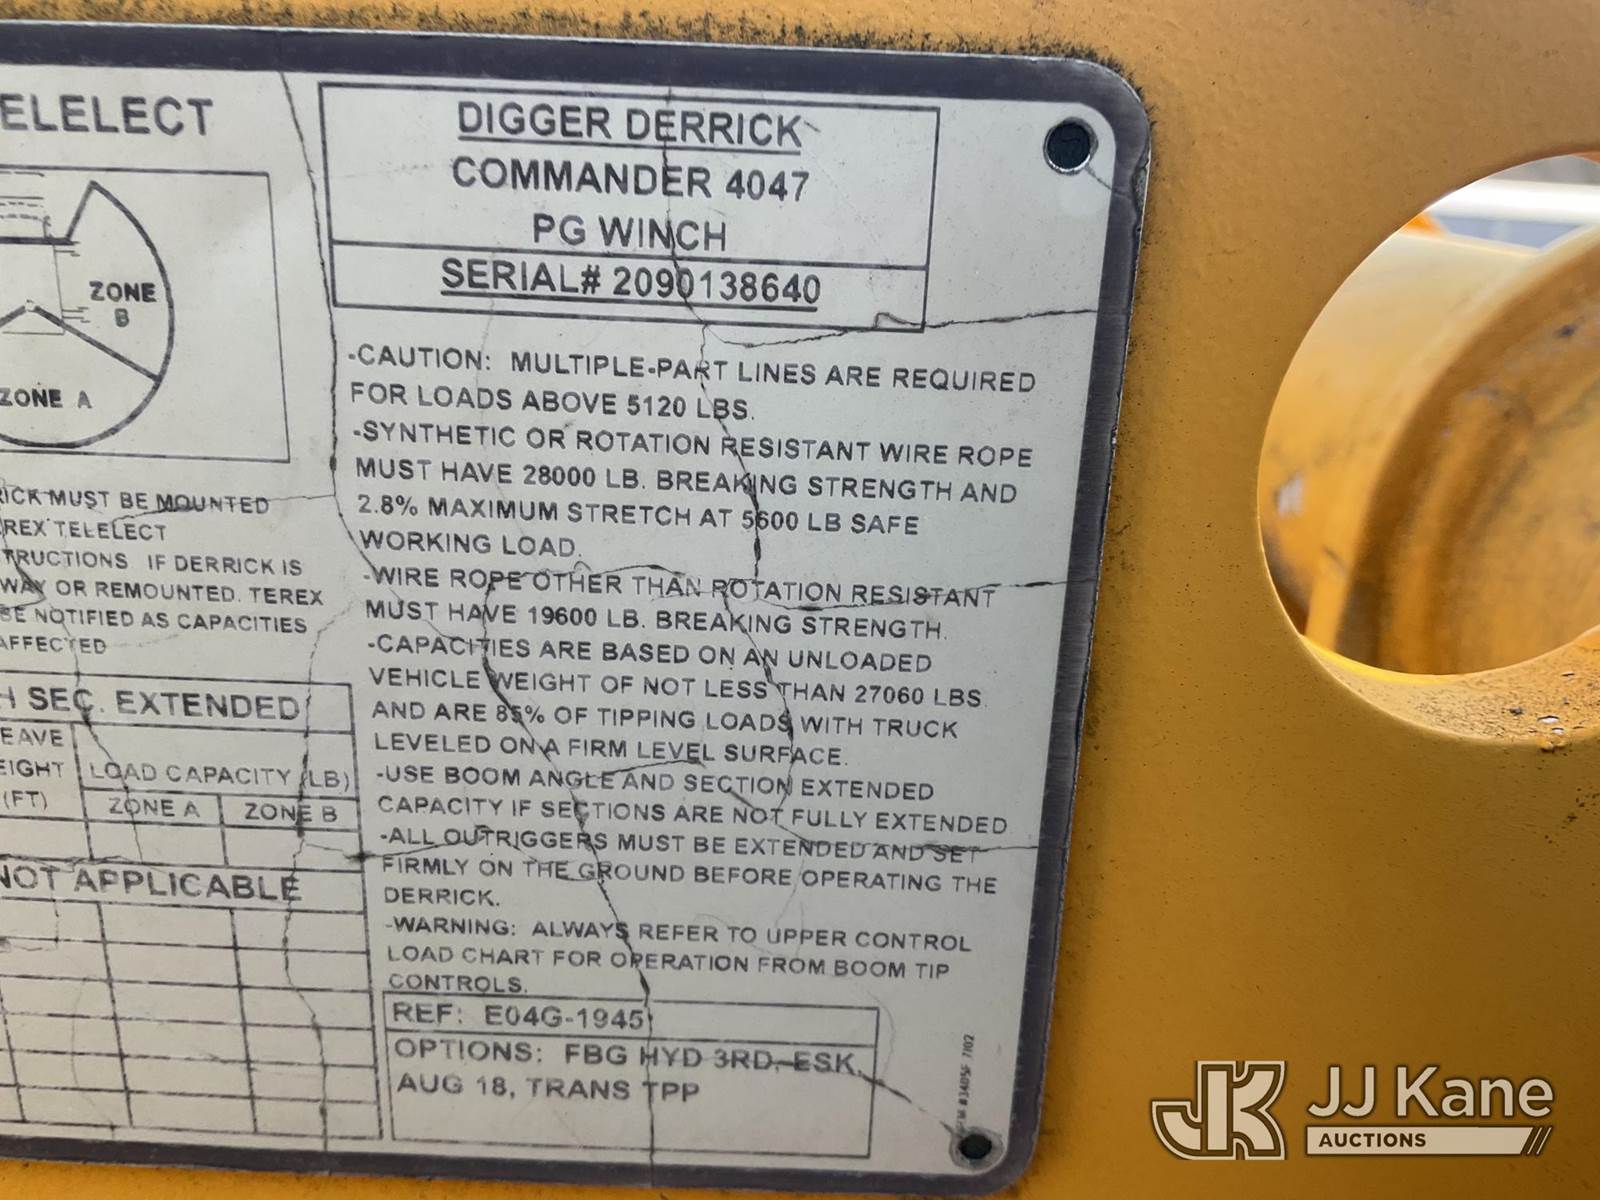 ELELECT
ZONE
B
ZONE A
RICK MUST BE MOUNTED
EREX TELELECT
TRUCTIONS IF DERRICK IS
WAY OR REMOUNTED. TEREX
BE NOTIFIED AS CAPACITIES
AFFECTED
H SEC. EXTENDED
EAVE
EIGHT
(FT)
LOAD CAPACITY (LB)
ZONE A
ZONE B
NOT APPLICABLE
DIGGER DERRICK
COMMANDER 4047
PG WINCH
SERIAL# 2090138640
-CAUTION: MULTIPLE-PART LINES ARE REQUIRED
FOR LOADS ABOVE 5120 LBS.
-SYNTHETIC OR ROTATION RESISTANT WIRE ROPE
MUST HAVE 28000 LB. BREAKING STRENGTH AND
2.8% MAXIMUM STRETCH AT 5600 LB SAFE
WORKING LOAD.
-WIRE ROPE OTHER THAN ROTATION RESISTANT
MUST HAVE 19600 LB. BREAKING STRENGTH.
-CAPACITIES ARE BASED ON AN UNLOADED
VEHICLE WEIGHT OF NOT LESS THAN 27060 LBS.
AND ARE 85% OF TIPPING LOADS WITH TRUCK
LEVELED ON A FIRM LEVEL SURFACE.
-USE BOOM ANGLE AND SECTION EXTENDED
CAPACITY IF SECTIONS ARE NOT FULLY EXTENDED
-ALL OUTRIGGERS MUST BE EXTENDED AND SET
FIRMLY ON THE GROUND BEFORE OPERATING THE
DERRICK.
-WARNING: ALWAYS REFER TO UPPER CONTROL
LOAD CHART FOR OPERATION FROM BOOM TIP
CONTROLS.
REF: E04G-1945
OPTIONS: FBG HYD 3RD, ESK,
AUG 18, TRANS TPP
#3405F 7/02
JJ Kane
AUCTIONS